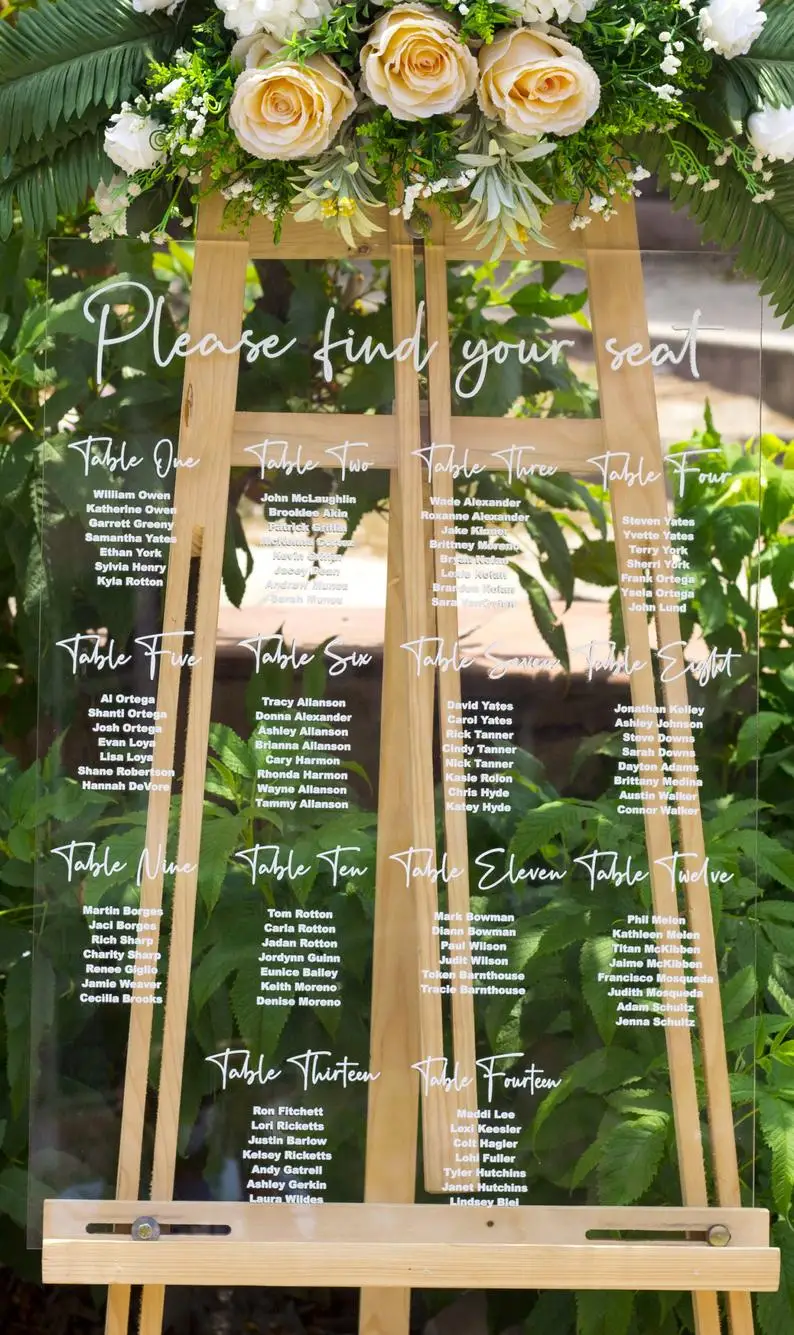 Please find your seat
Table One
William Owen
Katherine Owen
Garrett Greeny
Samantha Yates
Ethan York
Sylvia Henry
Kyla Rotton
Table Two
John McLaughlin
Brooklee Akin
Patrick Griffin
McKenna
Kevin
Jacey Dean
Andrew Munoz
Sarah Munoz
Table Three
Wade Alexander
Roxanne Alexander
Jake Kinner
Brittney Moreno
Bryan Nolan
Lexie Nolan
Brandon Nolan
Sara
Table Four
Steven Yates
Yvette Yates
Terry York
Sherri York
Frank Ortega
Ysela Ortega
John Lund
Table Five
Al Ortega
Shanti Ortega
Josh Ortega
Evan Loya
Lisa Loya
Shane Robertson
Hannah DeVore
Table Six
Tracy Allanson
Donna Alexander
Ashley Allanson
Brianna Allanson
Cary Harmon
Rhonda Harmon
Wayne Allanson
Tammy Allanson
Table Seven
David Yates
Carol Yates
Rick Tanner
Cindy Tanner
Nick Tanner
Kasie Rolon
Chris Hyde
Katey Hyde
Table Eight
Jonathan Kelley
Ashley Johnson
Steve Downs
Sarah Downs
Dayton Adams
Brittany Medina
Austin Walker
Connor Walker
Table Nine
Martin Borges
Jaci Borges
Rich Sharp
Charity Sharp
Renee Giglio
Jamie Weaver
Cecilia Brooks
Table Ten
Tom Rotton
Carla Rotton
Jadan Rotton
Jordynn Guinn
Eunice Bailey
Keith Moreno
Denise Moreno
Table Eleven
Mark Bowman
Diann Bowman
Paul Wilson
Judit Wilson
Token Barnthouse
Tracie Barnthouse
Table Twelve
Phil Melen
Kathleen Melen
Titan McKibben
Jaime McKibben
Francisco Mosqueda
Judith Mosqueda
Adam Schultz
Jenna Schultz
Table Thirteen
Ron Fitchett
Lori Ricketts
Justin Barlow
Kelsey Ricketts
Andy Gatrell
Ashley Gerkin
Laura Wildes
Table Fourteen
Maddi Lee
Lexi Keesler
Colt Hagler
Lohi Fuller
Tyler Hutchins
Janet Hutchins
Lindsey Biel